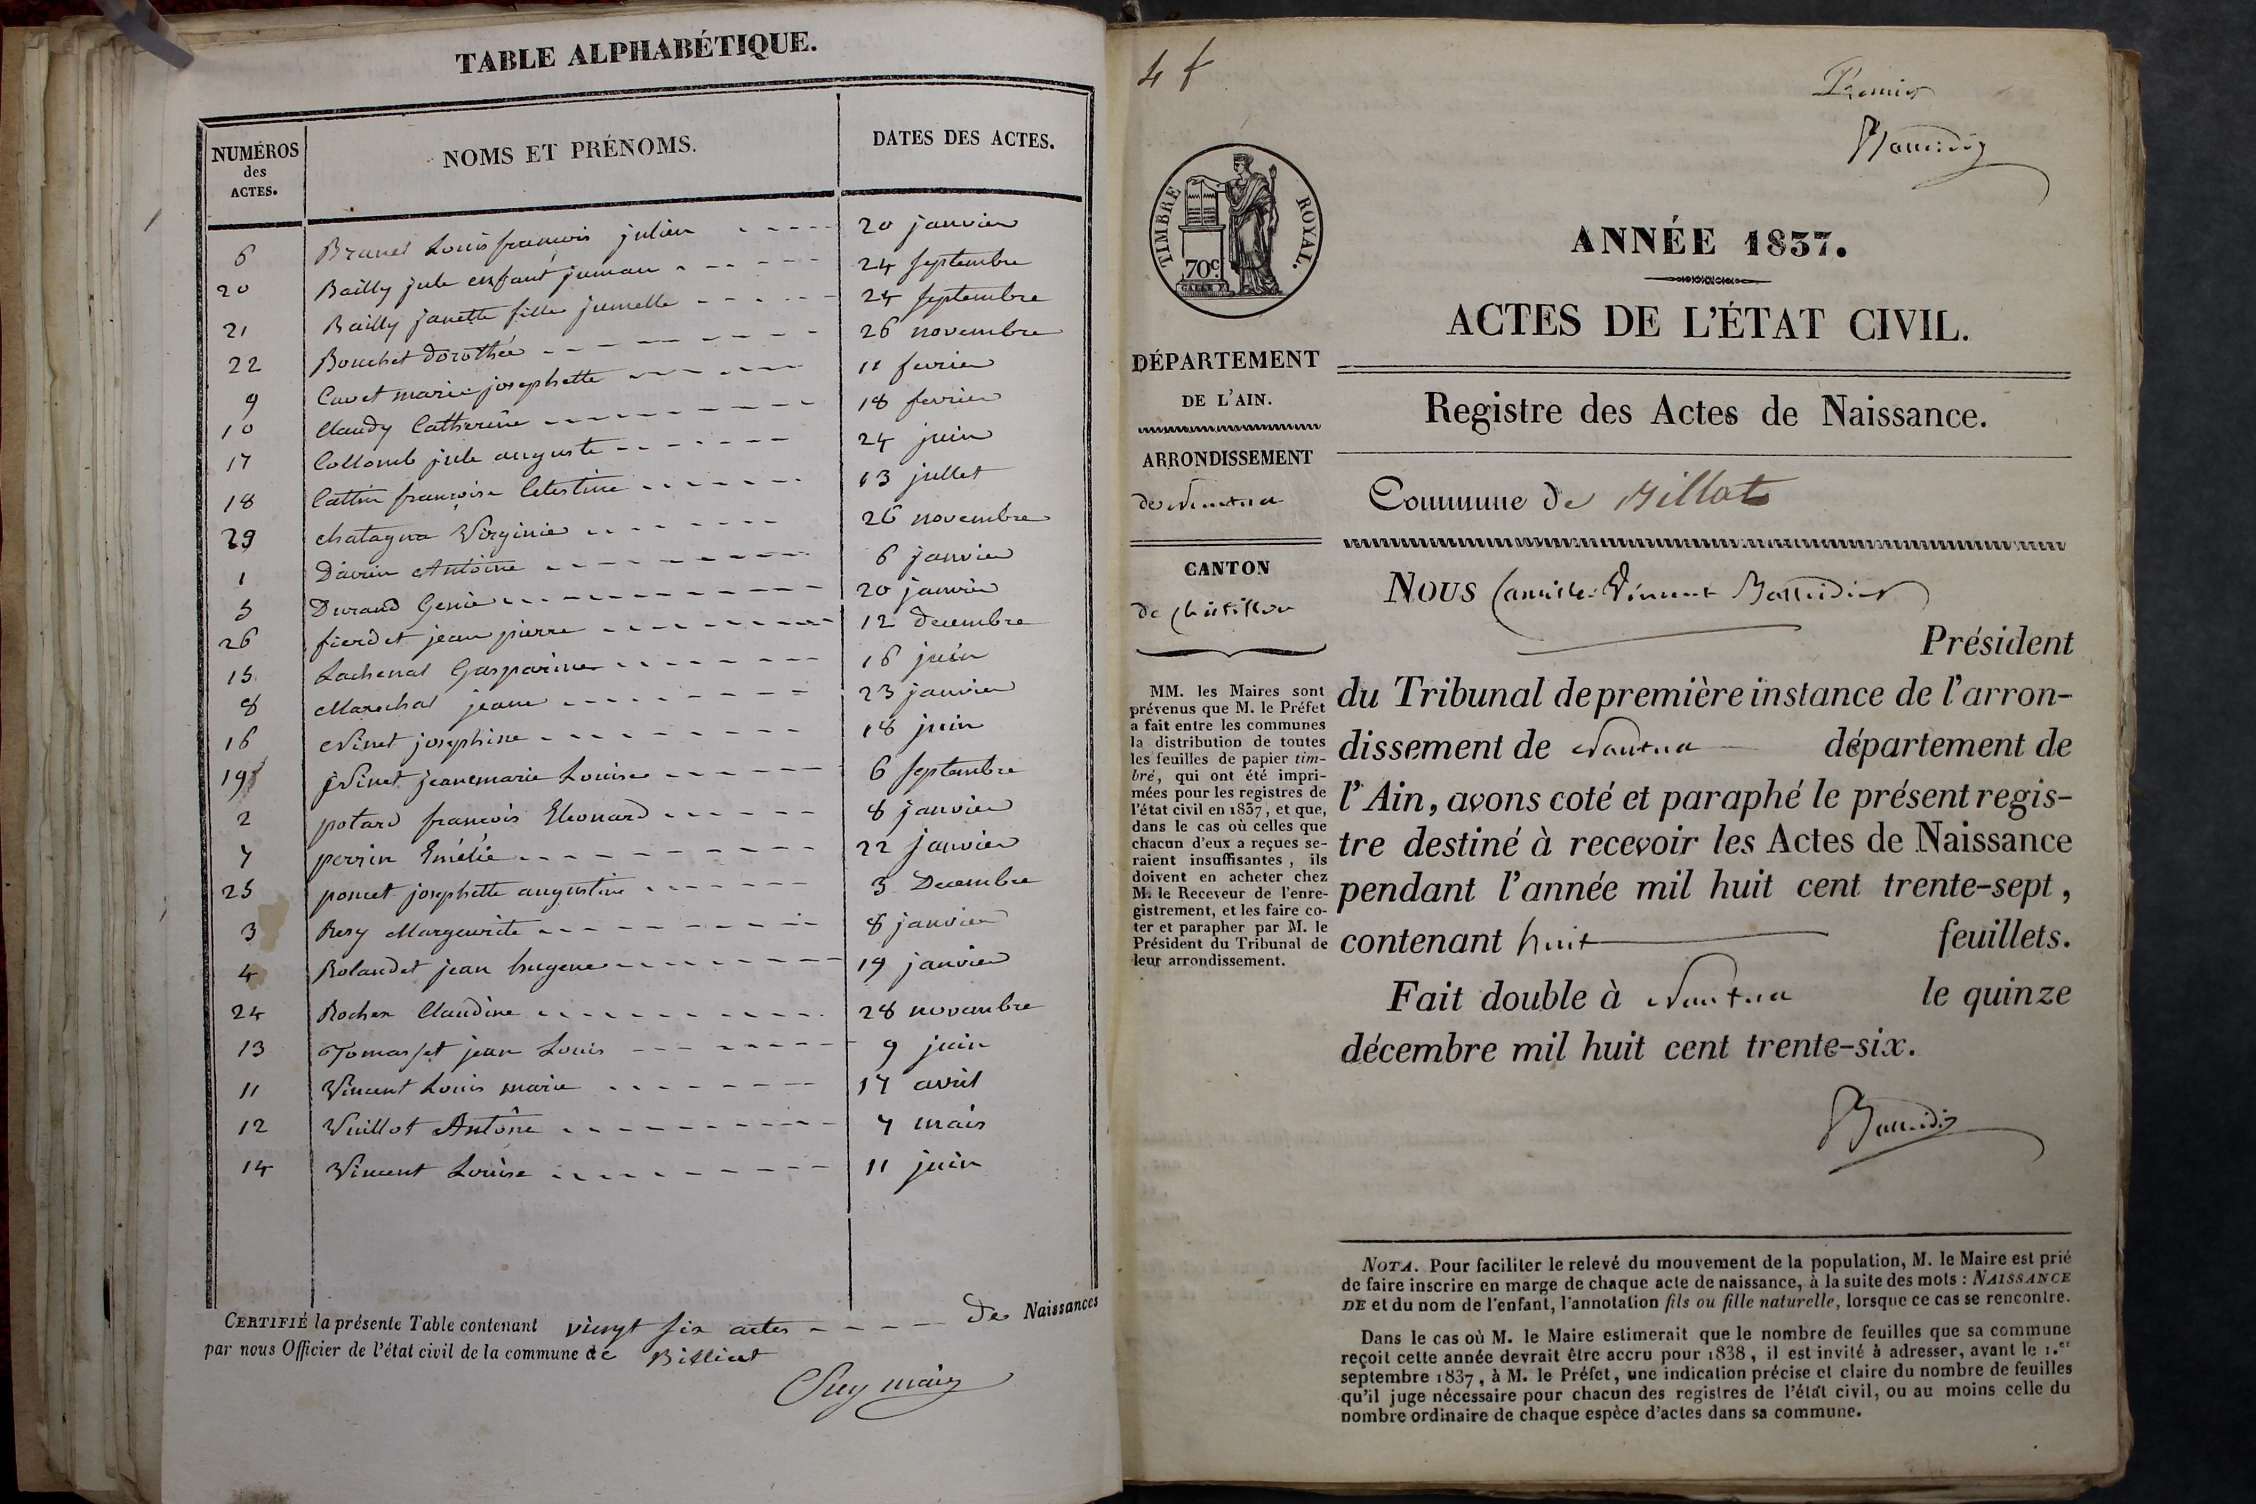 TABLE ALPHABÉTIQUE.
NUMÉROS des ACTES. NOMS ET PRÉNOMS. DATES DES ACTES.
6 Louis françois julien 20 janvier
20 Bailly jule enfant jumau 24 septembre
21 Bailly janette fille jumelle 24 septembre
22 Bouchet dorothée 26 novembre
9 Cavet marie josephette 11 fevrier
10 Claudy Catherine 18 fevrier
17 Collomb jule auguste 24 juin
18 Cattin françoise Celestine 13 jullet
23 chatagna Virginie 26 novembre
1 Davrin Antoine 6 janvier
5 Durand Genie 20 janvier
26 fierdet jean pierre 12 decembre
15 Lachenal Gasparine 16 juin
8 Marechal jeane 23 janvier
16 Ninet josephine 18 juin
19 Ninet jeanemarie Louise 6 septembre
2 potard francois Eleonard 8 janvier
7 perrin Emélie 22 janvier
25 poncet josephette augustine 3 Decembre
3 Rey Margeurite 8 janvier
4 Rolandet jean hugene 19 janvier
24 Rochex Claudine 28 novembre
13 Tomasset jean Louis 9 juin
11 Vincent Louis marie 17 avril
12 Vuillot Antône 7 mais
14 Vincent Louise 11 juin
CERTIFIÉ la présente Table contenant vingt six actes de Naissances
par nous Officier de l'état civil de la commune de Billiat
maire
4 f
Premier
TIMBRE ROYAL.
70c
ANNÉE 1837.
ACTES DE L'ÉTAT CIVIL.
DÉPARTEMENT
DE L'AIN.
ARRONDISSEMENT
de Nantua
CANTON
de Châtillon
MM. les Maires sont
prévenus que M. le Préfet
a fait entre les communes
la distribution de toutes
les feuilles de papier tim-
bré, qui ont été impri-
mées pour les registres de
l'état civil en 1837, et que,
dans le cas où celles que
chacun d'eux a reçues se-
raient insuffisantes, ils
doivent en acheter chez
M. le Receveur de l'enre-
gistrement, et les faire co-
ter et parapher par M. le
Président du Tribunal de
leur arrondissement.
Registre des Actes de Naissance.
Commune de Billat
NOUS Camille Vincent
Président
du Tribunal de première instance de l'arron-
dissement de Nantua département de
l'Ain, avons coté et paraphé le présent regis-
tre destiné à recevoir les Actes de Naissance
pendant l'année mil huit cent trente-sept,
contenant huit feuillets.
Fait double à Nantua le quinze
décembre mil huit cent trente-six.
NOTA. Pour faciliter le relevé du mouvement de la population, M. le Maire est prié
de faire inscrire en marge de chaque acte de naissance, à la suite des mots : NAISSANCE
DE et du nom de l'enfant, l'annotation fils ou fille naturelle, lorsque ce cas se rencontre.
Dans le cas où M. le Maire estimerait que le nombre de feuilles que sa commune
reçoit cette année devrait être accru pour 1838, il est invité à adresser, avant le 1.er
septembre 1837, à M. le Préfet, une indication précise et claire du nombre de feuilles
qu'il juge nécessaire pour chacun des registres de l'état civil, ou au moins celle du
nombre ordinaire de chaque espèce d'actes dans sa commune.